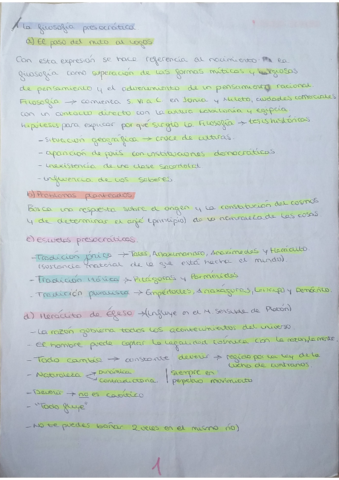 1. La filosofía presocrática
a) El paso del mito al logos
Con esta expresión se hace referencia al nacimiento de la
filosofía como superación de las formas míticas y religiosas
de pensamiento y el advenimiento de un pensamiento racional
Filosofía → comienza S. VI a.C en Jonia y Mileto, ciudades comerciales
con un contacto directo con la cultura babilonia y egipcia
hipótesis para explicar por qué surgió la filosofía → tesis históricas
- situación geográfica → cruce de culturas
- aparición de polis con instituciones democráticas
- inexistencia de una clase sacerdotal
- influencia de los sabores
b) Problemas planteados
Busca una respuesta sobre el origen y la constitución del cosmos
y de determinar el arjé (principio) de la naturaleza de las cosas
c) Escuelas presocráticas
- Tradición jónica → Tales, Anaximandro, Anaxímedes y Heráclito
(sustancia material de la que está hecha el mundo)
- Tradición itálica → Pitágoras y Parménides
- Tradición pluralista → Empédocles, Anaxágoras, Leucipo y Demócrito.
d) Heráclito de Éfeso → (influye en el M. Sensible de Platón)
- La razón gobierna todos los acontecimientos del universo
- El hombre puede captar la legalidad cósmica con el
- Todo cambia → constante devenir → regido por la ley de la
lucha de contrarios
- Naturaleza armónica siempre en
contradictoria perpetuo movimiento
- Devenir → no es caótico
- "Todo fluye"
- No te puedes bañar 2 veces en el mismo río)
1